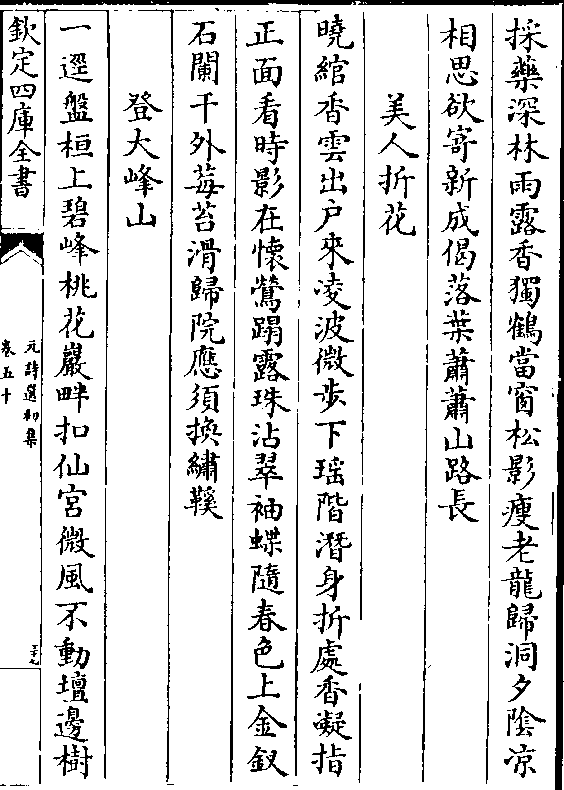 採藥深林雨露香獨鶴當窗松影瘦老龍歸洞夕陰凉
相思欲寄新成偈落葉蕭蕭山路長
美人折花
曉綰香雲出户來凌波微步下瑶階潛身折處香凝指
正面看時影在懷鶯蹋露珠沾翠袖蝶隨春色上金釵
石闌干外莓苔滑歸院應須換繡鞵
登大峰山
一逕盤桓上碧峰桃花巖畔扣仙宮微風不動壇邊樹
欽定四庫全書
元詩選初集
卷五十
三十九